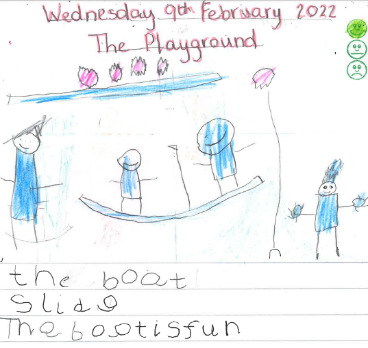 Wednesday 9th February 2022
The Playground
the boat
slide
The bootisfun